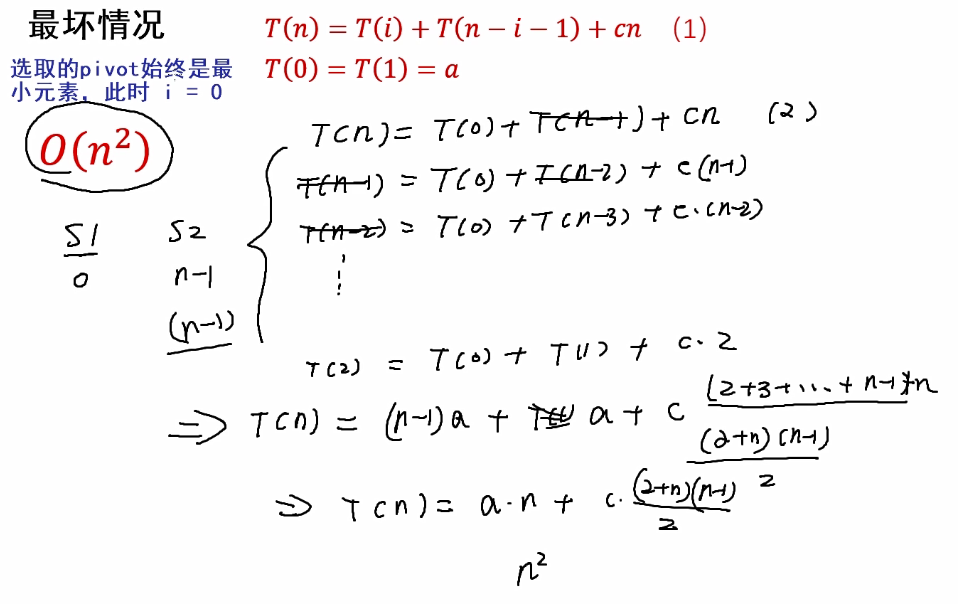 最坏情况
T(n) = T(i) + T(n − i − 1) + cn (1)
选取的pivot始终是最
小元素，此时 i = 0
T(0) = T(1) = a
O(n²)
T(n) = T(0) + T(n-1) + cn (2)
T(n-1) = T(0) + T(n-2) + c(n-1)
T(n-2) = T(0) + T(n-3) + c·(n-2)
⋮
S1 S2
0 n-1
(n-1)
T(2) = T(0) + T(1) + c·2
(2+3+...+n-1)+n
⇒ T(n) = (n-1)a + a + c
(2+n)(n-1)
2
⇒ T(n) = a·n + c·(2+n)(n-1)
2
n²